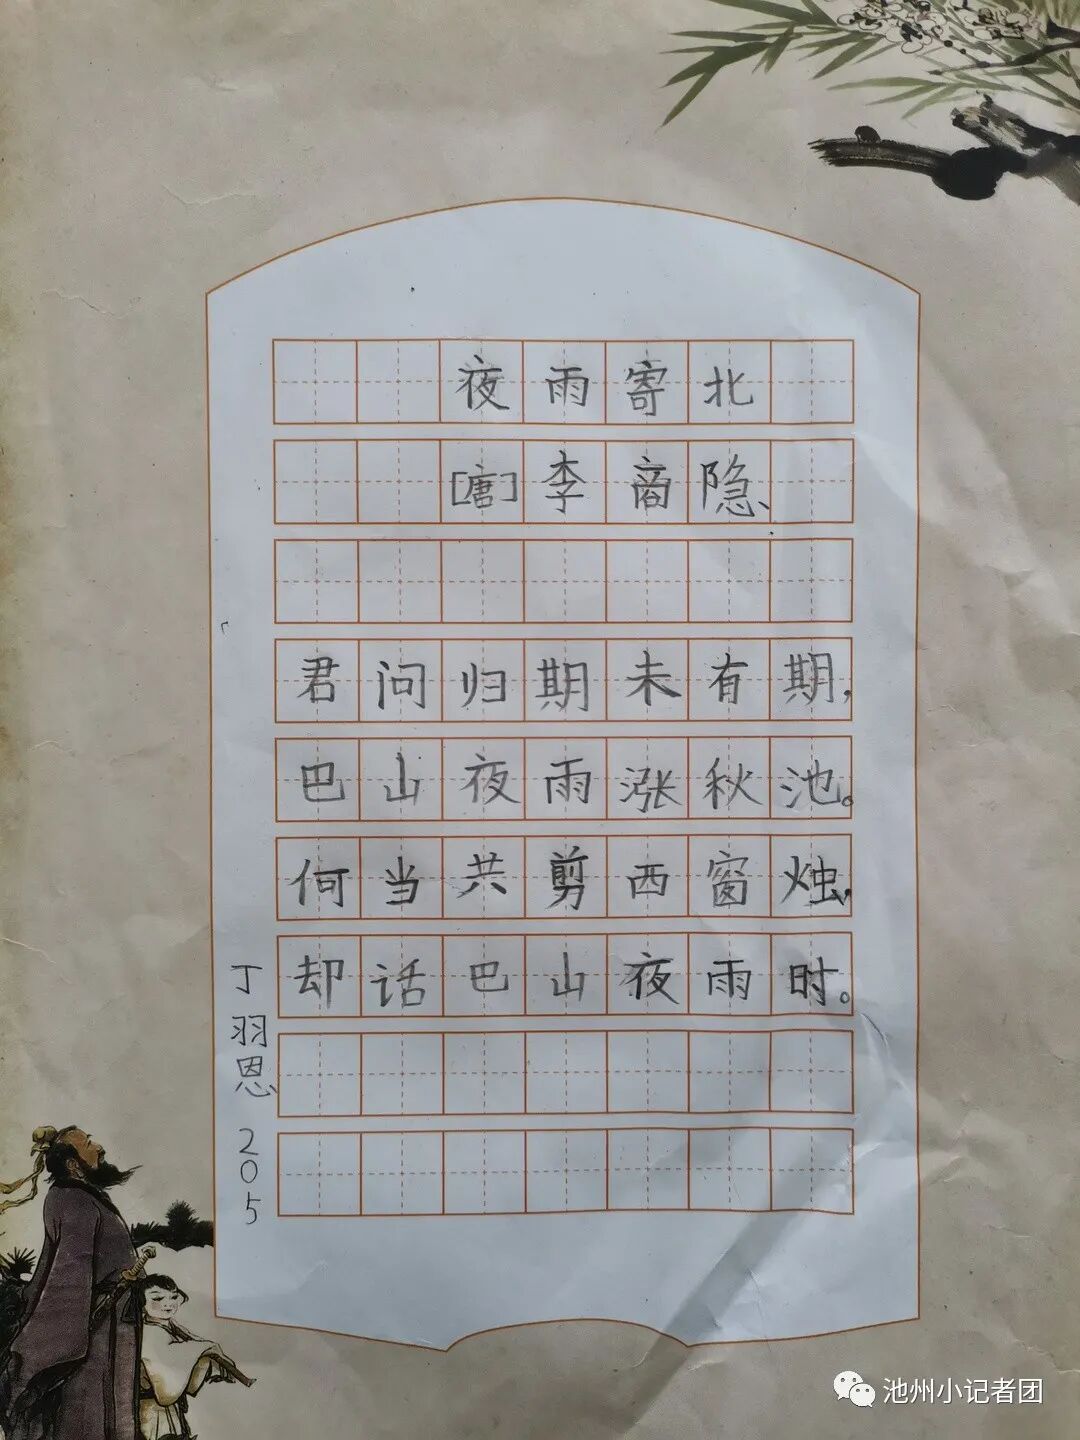 夜雨寄北
[唐]李商隐
君问归期未有期,
巴山夜雨涨秋池。
何当共剪西窗烛,
却话巴山夜雨时。
丁羽恩 205
池州小记者团